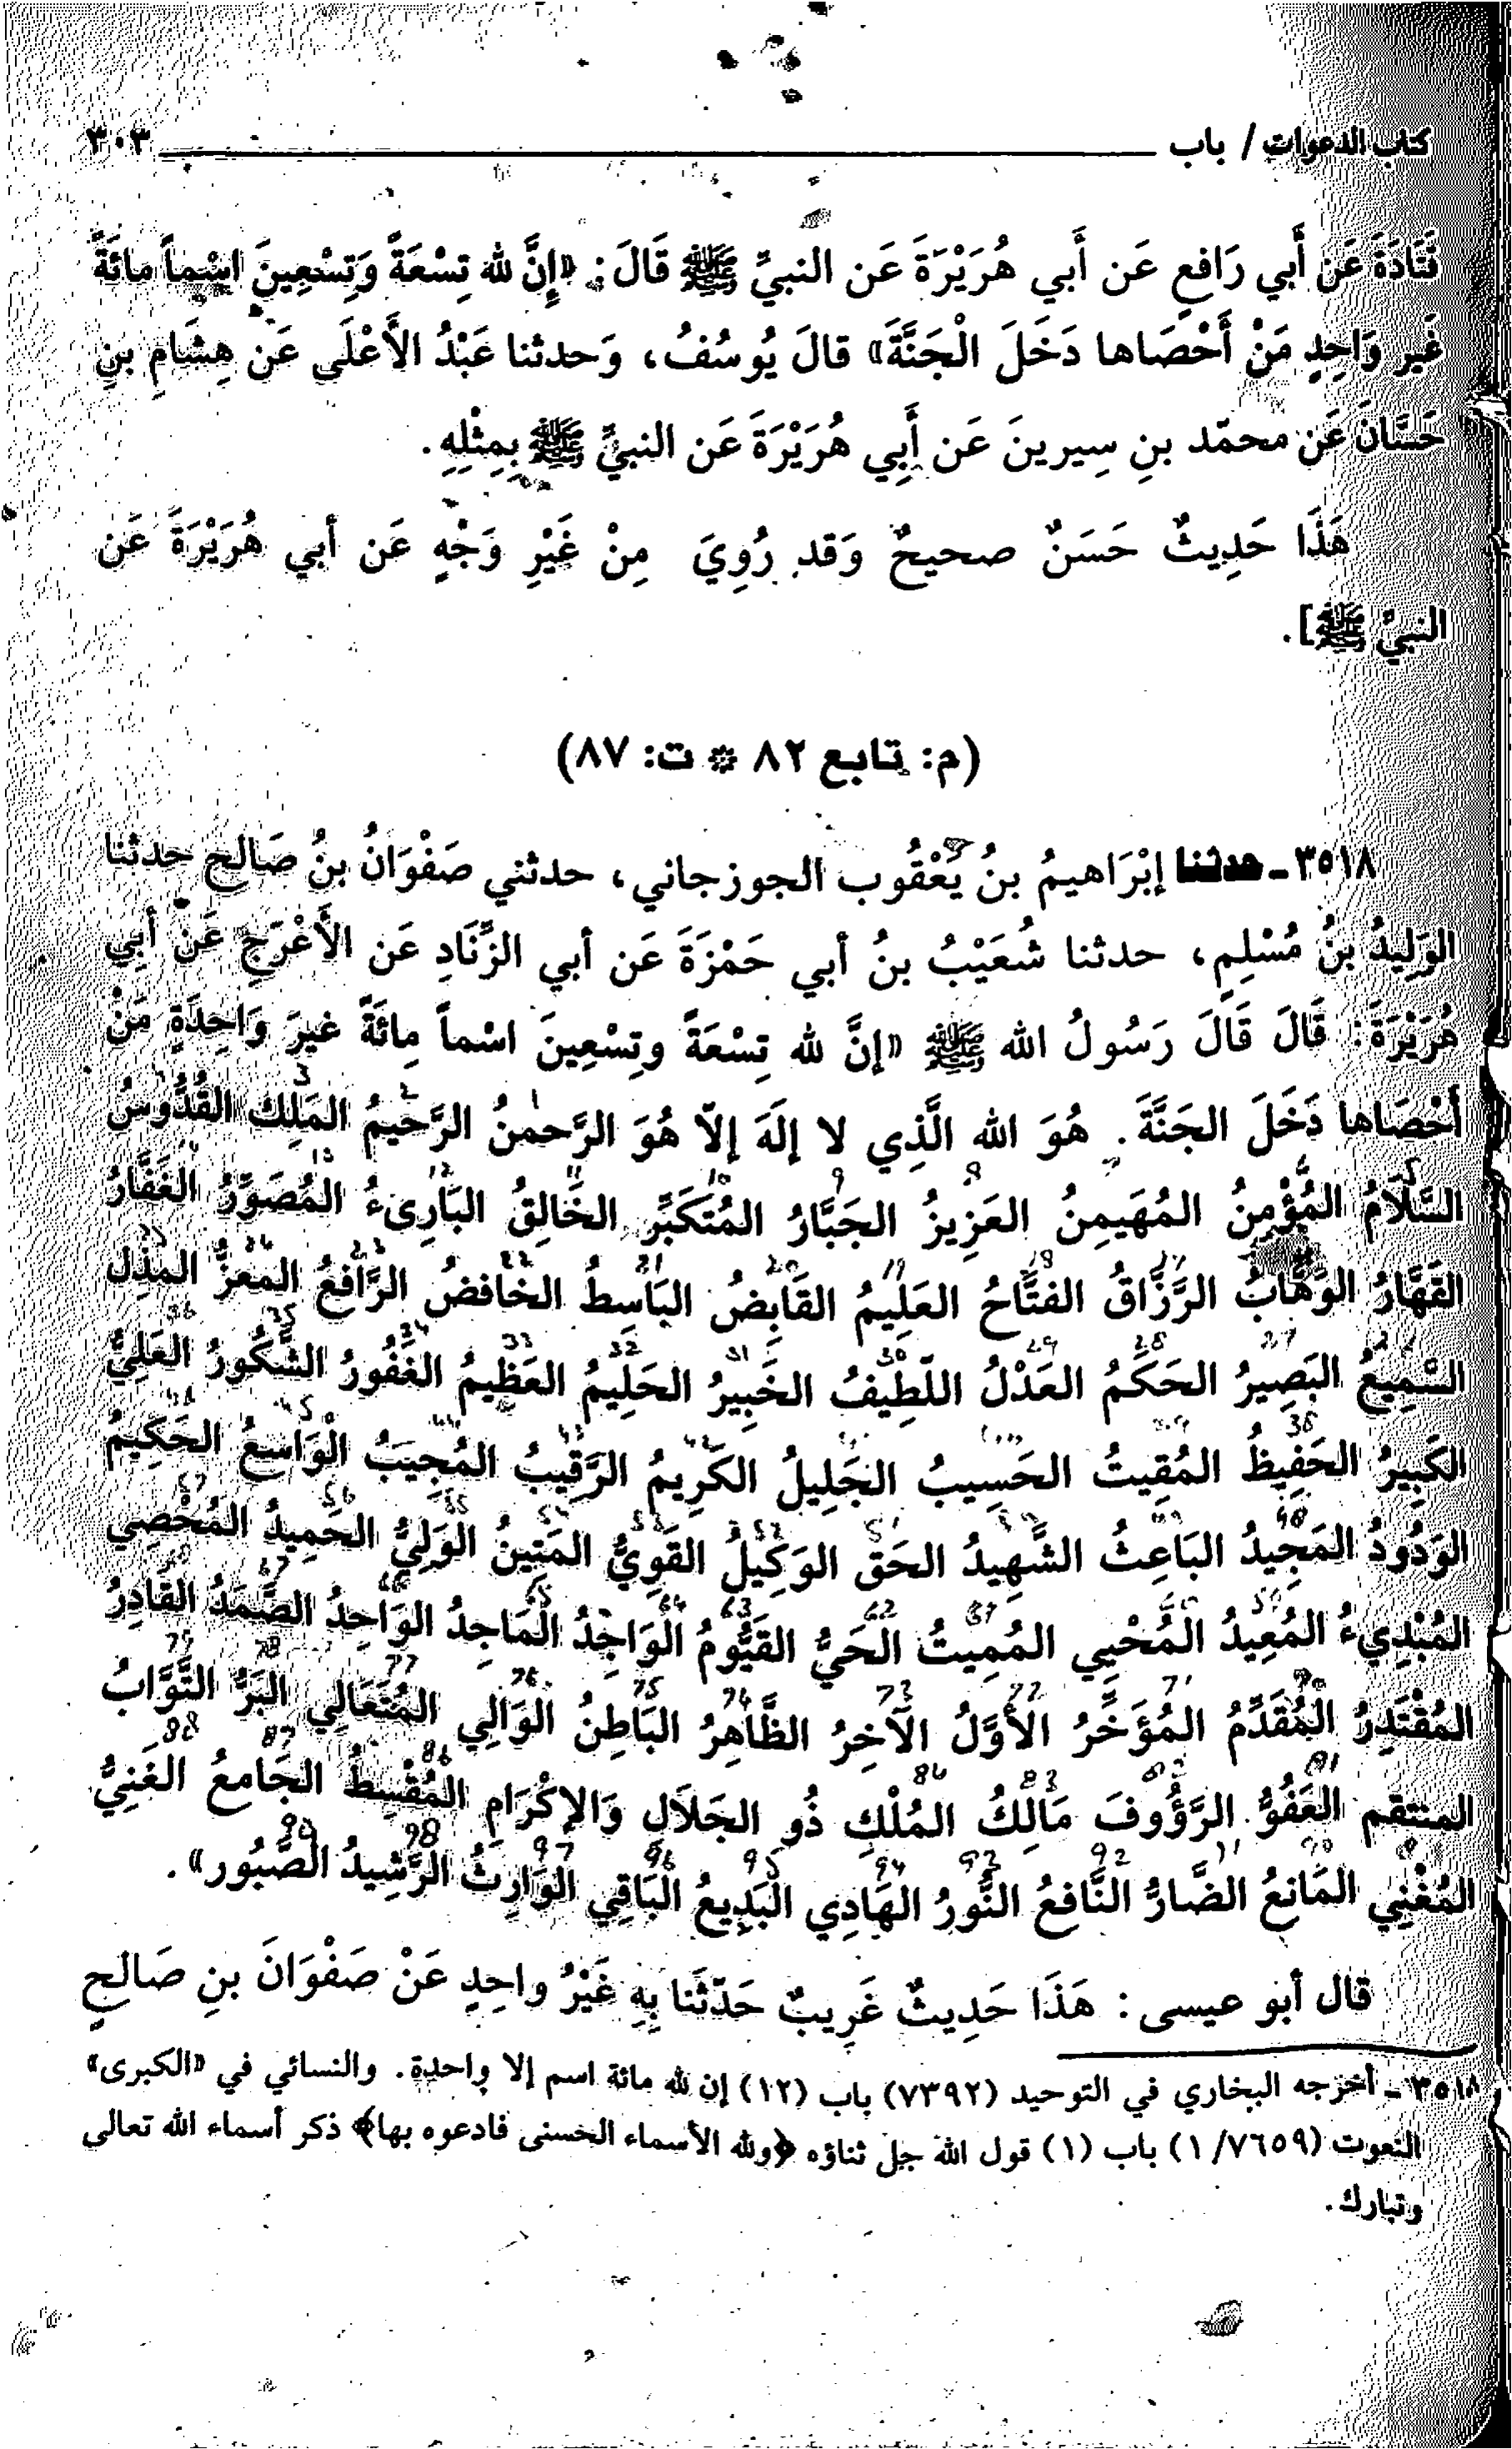 كتاب الدعوات / باب ٣٠٣
قَتَادَةَ عَن أَبي رَافعٍ عَن أَبي هُرَيْرَةَ عَن النبيِّ ﷺ قَالَ: «إِنَّ لله تِسْعَةً وَتِسْعِينَ اسْماً مائَةً
غَير وَاحِدٍ مَنْ أَحْصَاها دَخَلَ الْجَنَّةَ» قالَ يُوسُفُ، وَحدثنا عَبْدُ الأَعْلَى عَن هِشَامِ بنِ
حَسَّانَ عَن محمّد بنِ سِيرينَ عَن أَبِي هُرَيْرَةَ عَن النبيِّ ﷺ بِمِثْلِهِ.
هَذَا حَدِيثٌ حَسَنٌ صحيحٌ وَقد رُوِيَ مِنْ غَيْرِ وَجْهٍ عَن أبي هُرَيْرَةَ عَن
النبيِّ ﷺ].
(م: تابع ٨٢ * ت: ٨٧)
٣٥١٨ - حدثنا إبْرَاهيمُ بنُ يَعْقُوب الجوزجاني، حدثني صَفْوَانُ بنُ صَالحٍ حدثنا
الوَلِيدُ بنُ مُسْلِمٍ، حدثنا شُعَيْبُ بنُ أبي حَمْزَةَ عَن أبي الزِّنَادِ عَن الأَعْرَجِ عَن أبِي
هُرَيْرَةَ: قَالَ قَالَ رَسُولُ الله ﷺ «إنَّ لله تِسْعَةً وتِسْعِينَ اسْماً مِائَةً غيرَ وَاحِدَةٍ مَنْ
أحْصَاها دَخَلَ الجَنَّةَ. هُوَ الله الَّذِي لا إلَهَ إلاّ هُوَ الرَّحمٰنُ الرَّحيمُ المَلِكُ القُدُّوسُ
السَّلاَمُ المُؤْمِنُ المُهَيمِنُ العَزِيزُ الجَبَّارُ المُتَكَبِّر الخَالِقُ البَارِىءُ المُصَوِّرُ الغَفَّارُ
القَهَّارُ الوَهَّابُ الرَّزَّاقُ الفتَّاحُ العَلِيمُ القَابِضُ البَاسِطُ الخافضُ الرَّافعُ المعزُّ المذِل
السَّمِيعُ البَصِيرُ الحَكَمُ العَدْلُ اللّطِيفُ الخَبِيرُ الحَلِيمُ العَظِيمُ الغَفُورُ الشَّكُورُ العَلِيُّ
الكَبِيرُ الحَفِيظُ المُقِيتُ الحَسِيبُ الجَلِيلُ الكَرِيمُ الرَّقِيبُ المُجِيَبُ الْوَاسعُ الحَكِيمُ
الوَدُودُ المَجِيدُ البَاعِثُ الشَّهِيدُ الحَق الوَكِيلُ القَوِيُّ المَتِينُ الوَلِيُّ الحَمِيدُ المُحْصِي
المُبْدِيءُ المُعِيدُ المُحْيِي المُمِيتُ الحَيُّ القَيُّومُ الْوَاجِدُ المَاجِدُ الوَاحِدُ الصَّمَدُ القَادِرُ
المُقْتَدِرُ المُقَدِّمُ المُؤَخِّرُ الأوَّلُ الآخِرُ الظَّاهِرُ البَاطِنُ الوَالِي المُتَعَالِي البَرُّ التَّوَّابُ
المنتقم العَفُوُّ الرَّؤُوفَ مَالِكُ المُلْكِ ذُو الجَلاَلِ وَالإكْرَامِ الْمُقْسِطُ الجَامعُ الغَنِيُّ
المُغْنِي المَانعُ الضَّارُّ النَّافعُ النُّورُ الهَادِي البَدِيعُ الْبَاقِي الوَارِثُ الرَّشِيدُ الصَّبُور».
قال أبو عيسى: هَذَا حَدِيثٌ غَرِيبٌ حَدّثَنا بِهِ غَيْرُ واحِدٍ عَنْ صَفْوَانَ بنِ صَالحٍ
٣٥١٨ - أخرجه البخاري في التوحيد (٧٣٩٢) باب (١٢) إن لله مائة اسم إلا واحدة. والنسائي في «الكبرى»
النعوت (١/٧٦٥٩) باب (١) قول الله جل ثناؤه ﴿ولله الأسماء الحسنى فادعوه بها﴾ ذكر أسماء الله تعالى
وتبارك.